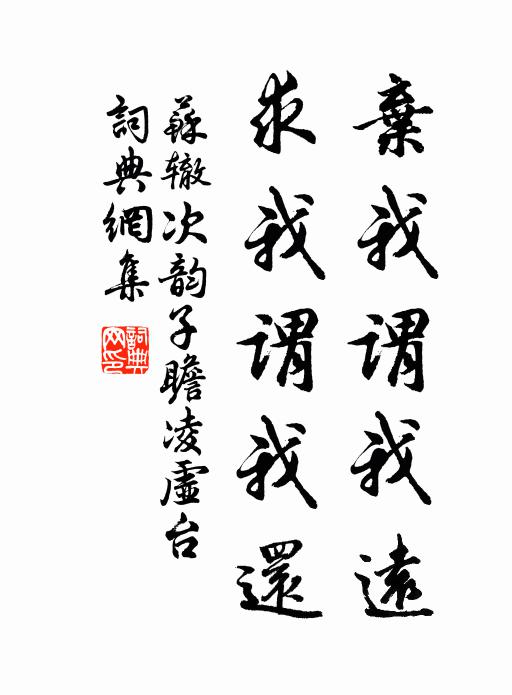 棄我謂我遠
求我謂我還
蘇辙次韵子瞻凌虛台
詞典網集
詞典网印